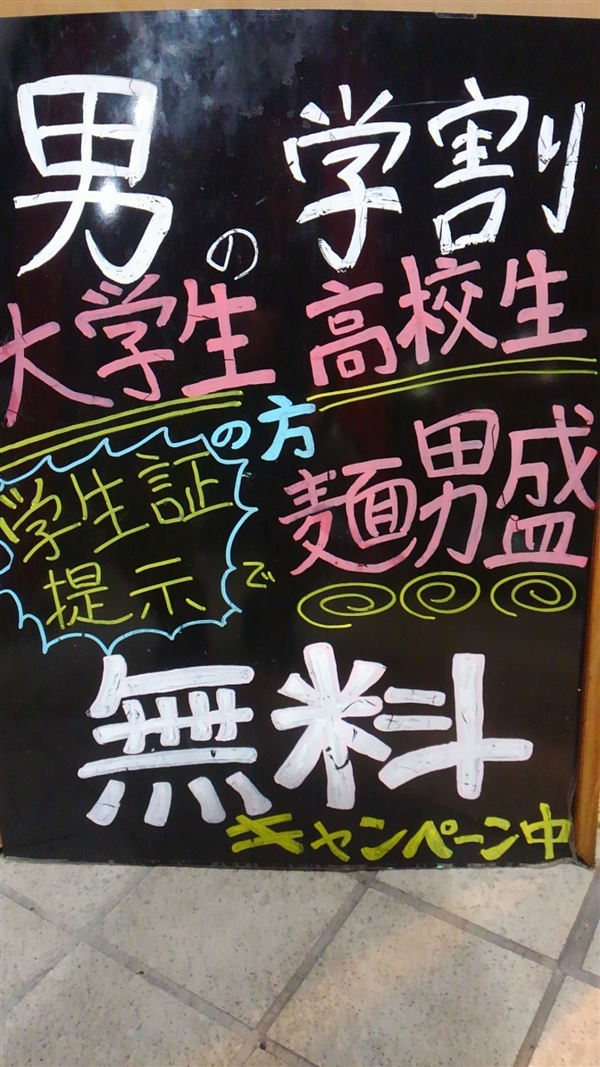 男の学割
大学生 高校生
の方
学生証
提示で
麺男盛
無料
キャンペーン中